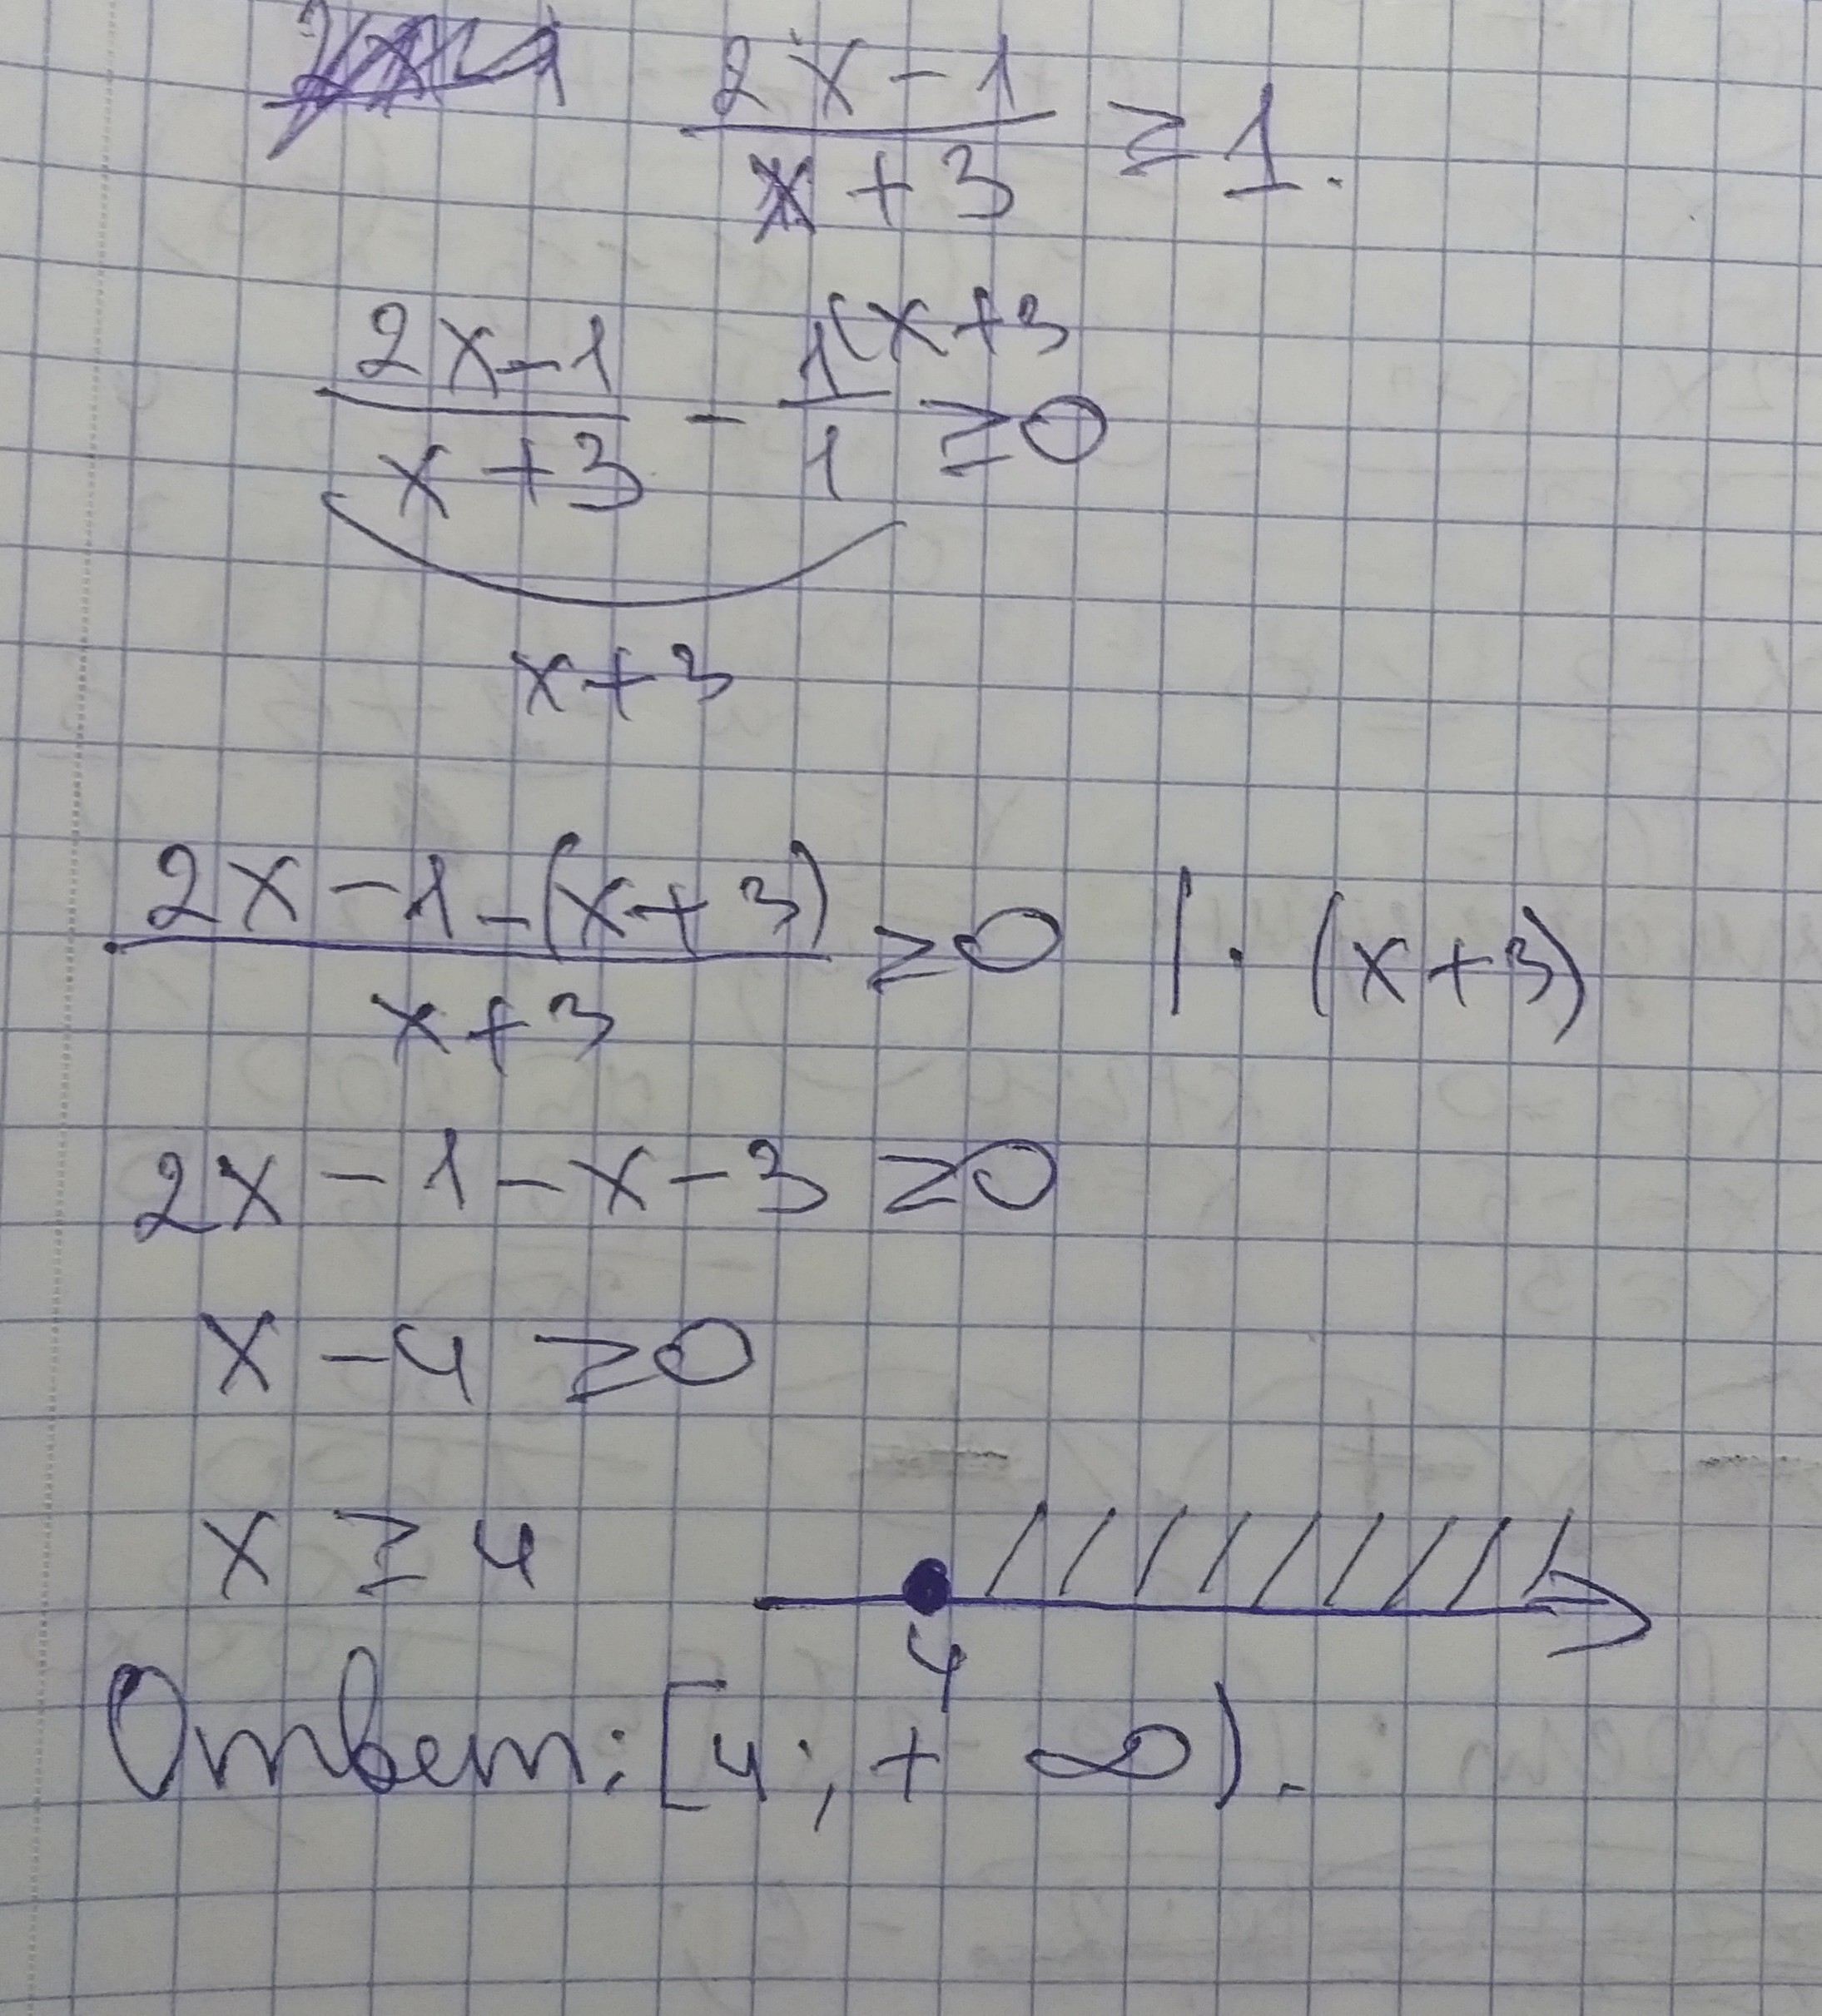 (2x-1)/(x+3) ≥ 1.
(2x-1)/(x+3) - 1/1 (x+3 ≥ 0
x+3
(2x-1-(x+3))/(x+3) ≥ 0 | · (x+3)
2x-1-x-3 ≥ 0
x-4 ≥ 0
x ≥ 4
4
Ответ: [4; +∞).